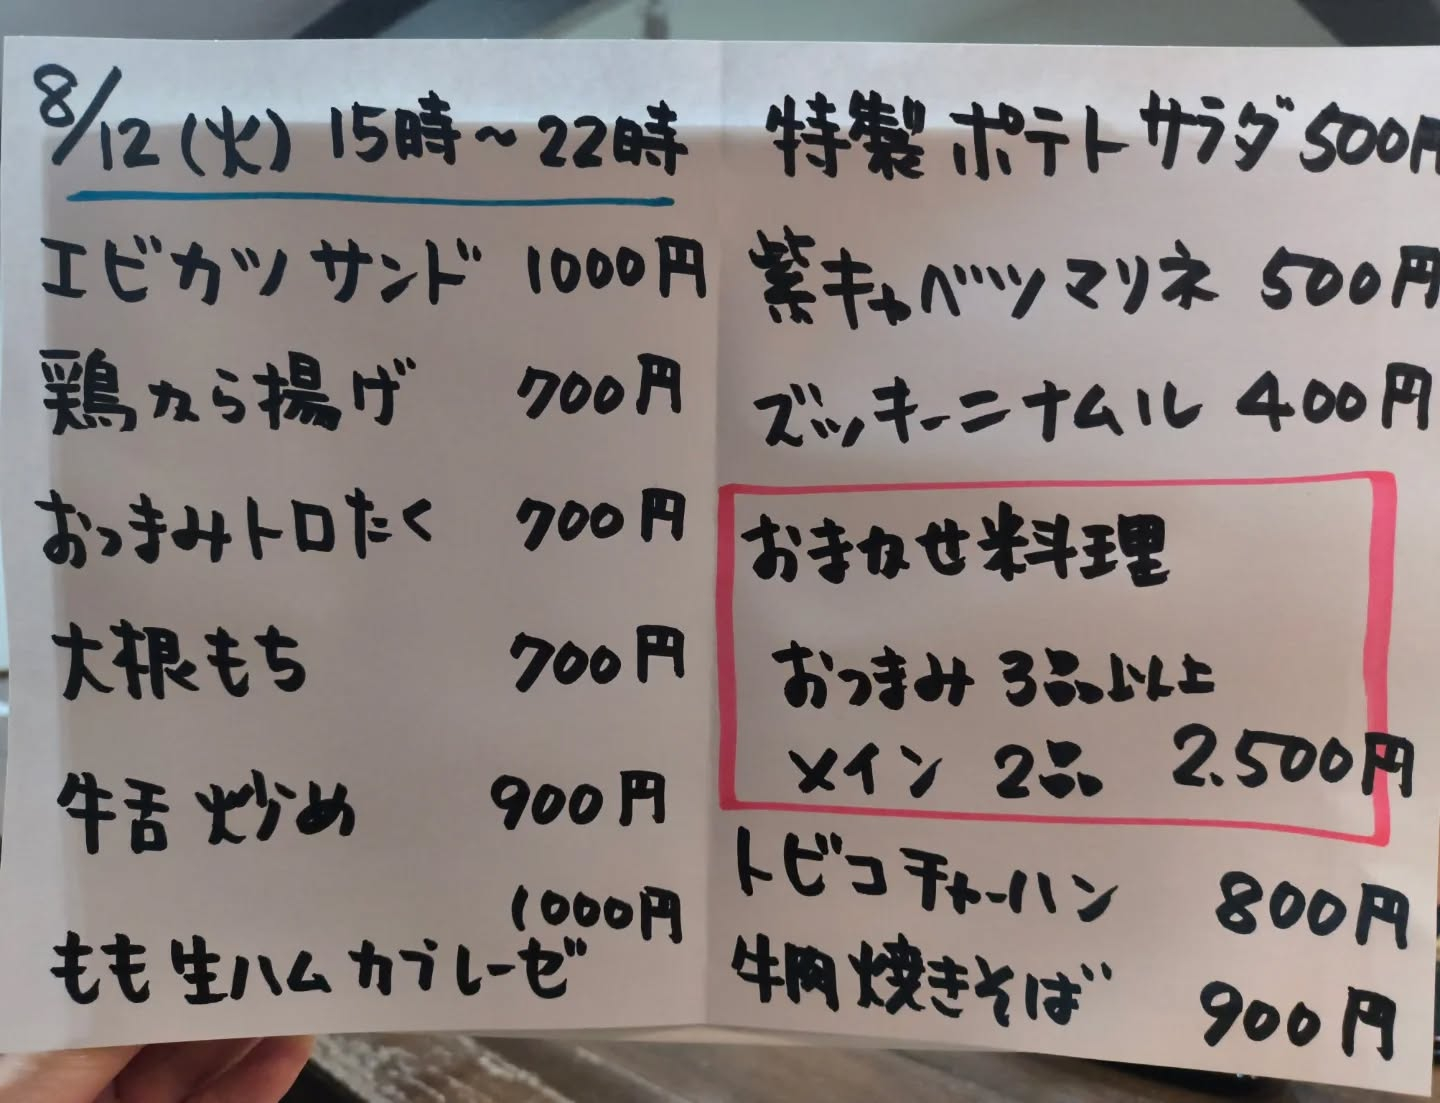 8/12(火) 15時～22時
エビカツサンド 1000円
鶏から揚げ 700円
おつまみトロたく 700円
大根もち 700円
牛舌炒め 900円
1000円
もも生ハムカプレーゼ
特製ポテトサラダ 500円
紫キャベツマリネ 500円
ズッキーニナムル 400円
おまかせ料理
おつまみ 3品以上
メイン 2品 2.500円
トビコチャーハン 800円
牛肉焼きそば 900円